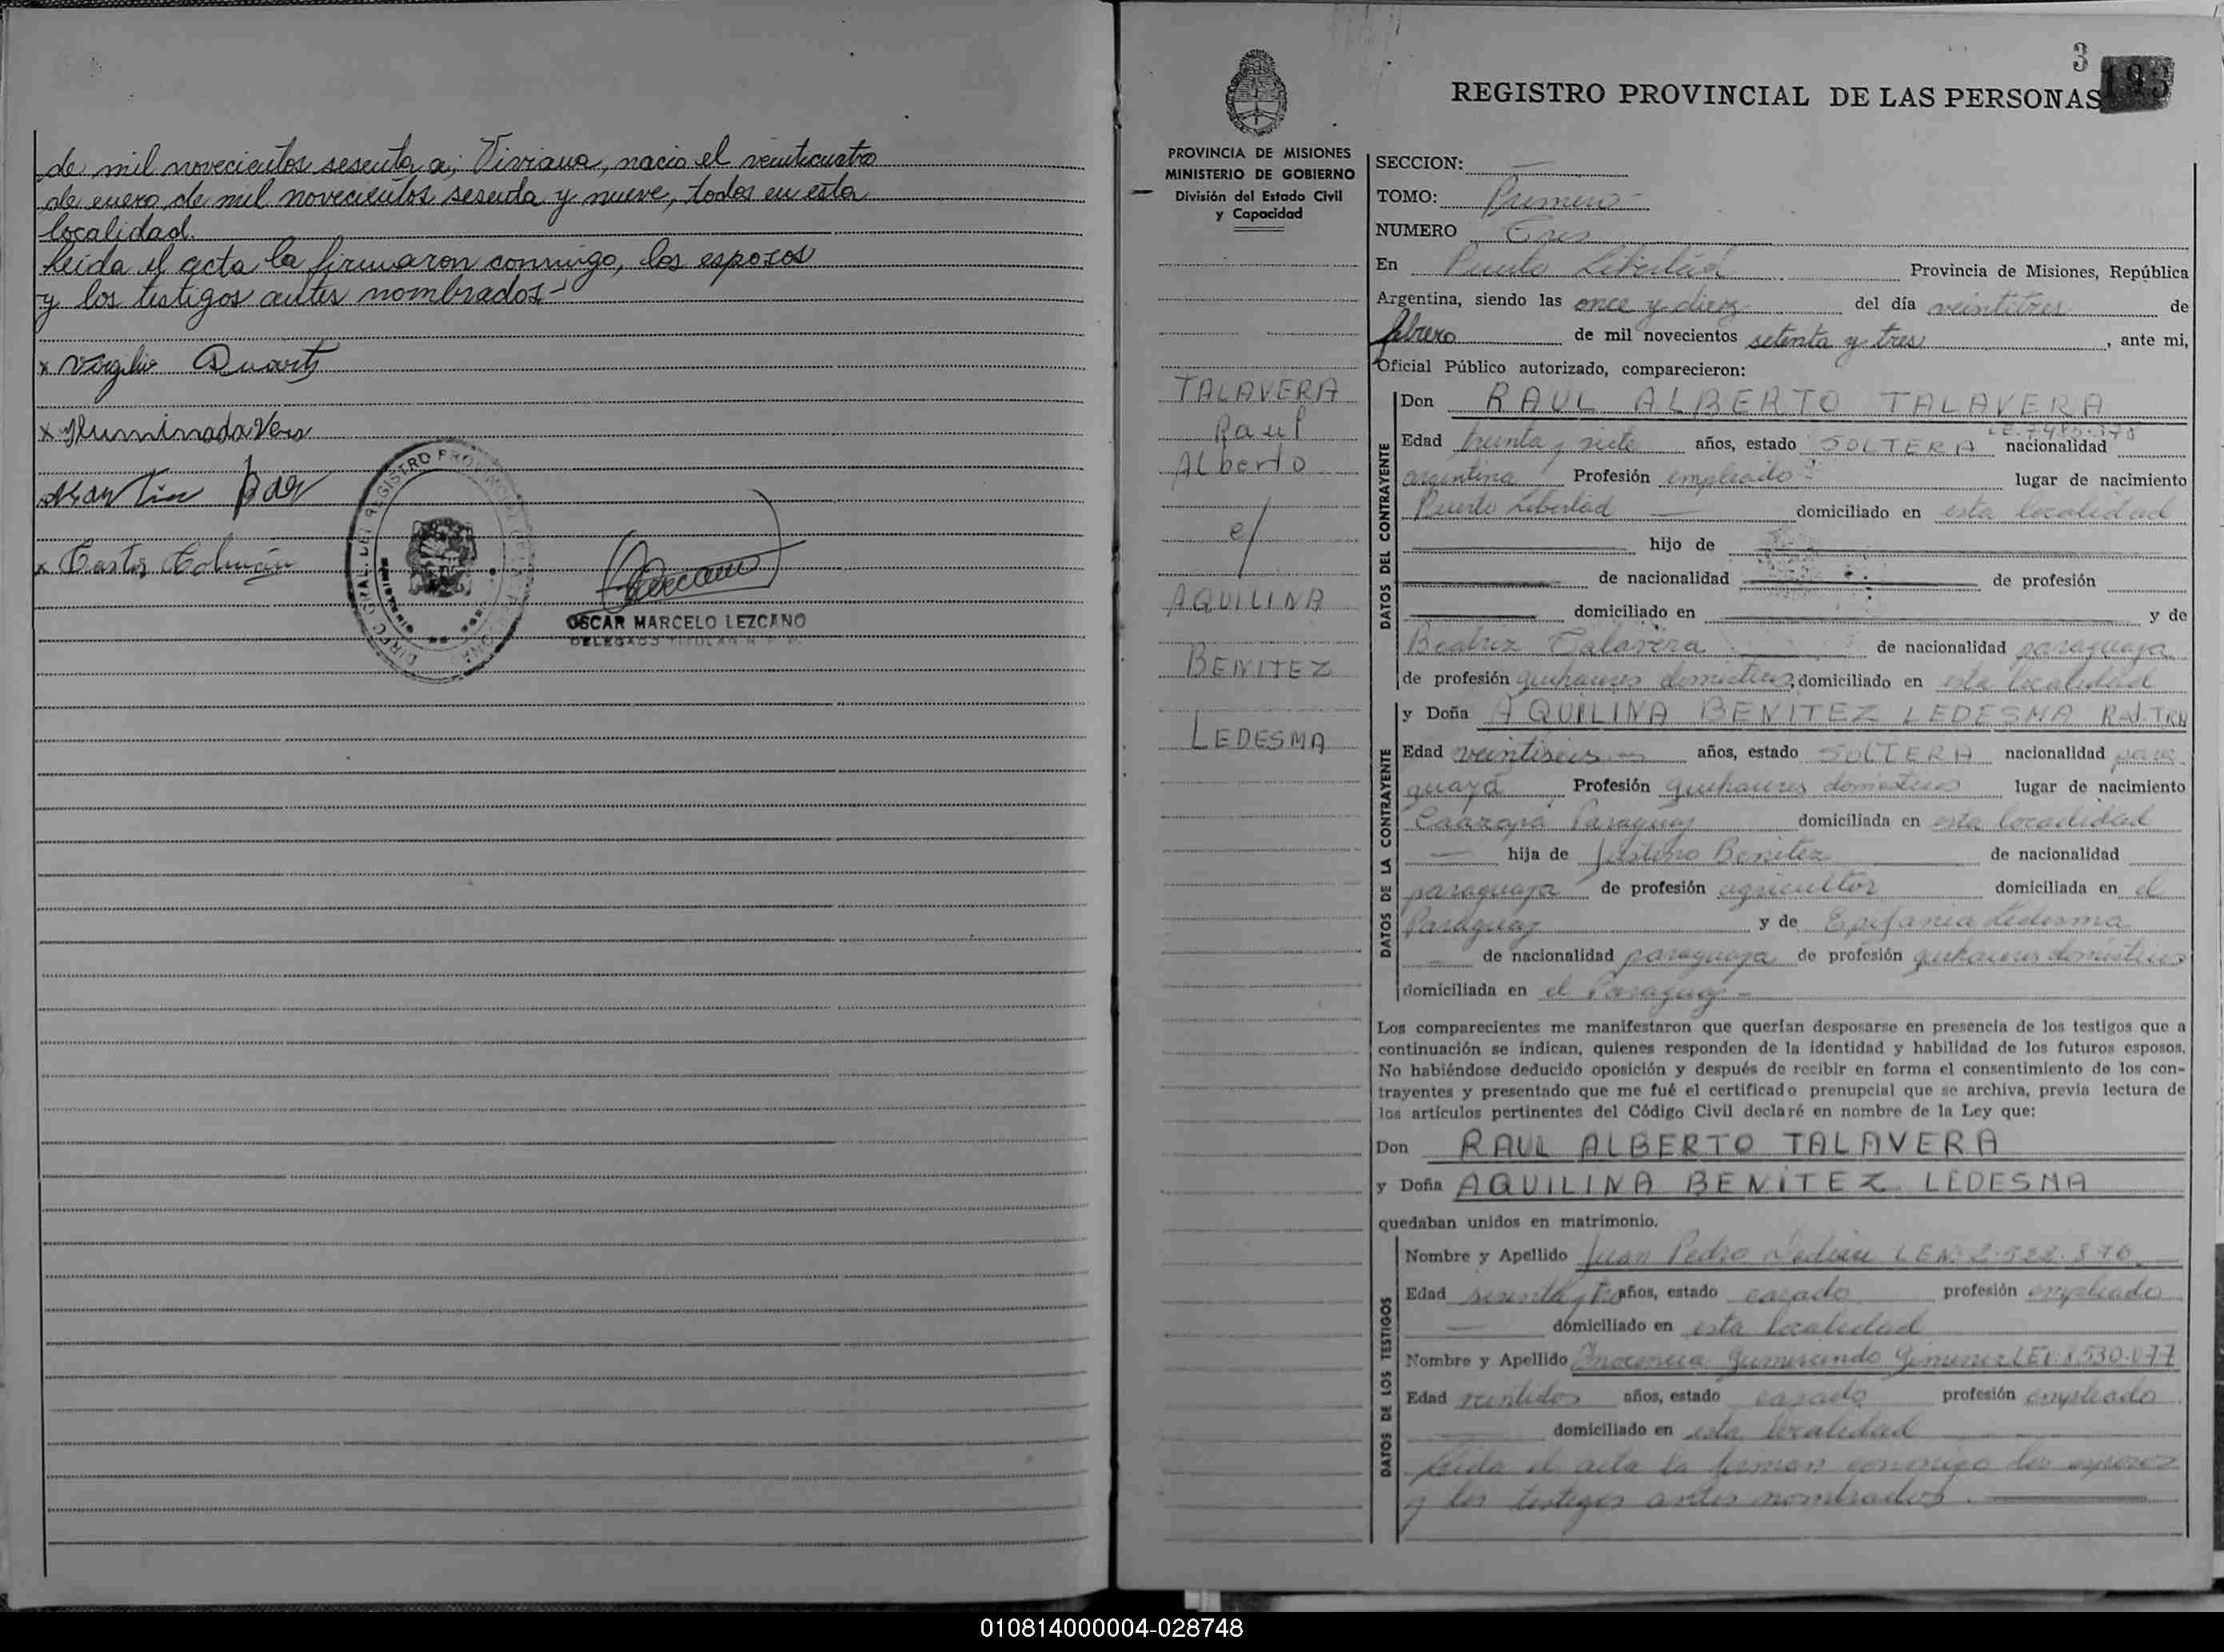 de mil novecientos sesenta a; Viviana, nacio el veinticuatro
de enero de mil novecientos sesenta y nueve, todos en esta
localidad.
Leida el acta la firmaron conmigo, los esposos
y los testigos antes nombrados-
x Virgilio Duarte
x Iluminada Vera
Martin
x Castor Colmán
OSCAR MARCELO LEZCANO
DELEGADO TITULAR R. P. P.
3
193
REGISTRO PROVINCIAL DE LAS PERSONAS
PROVINCIA DE MISIONES
MINISTERIO DE GOBIERNO
División del Estado Civil
y Capacidad
TALAVERA
Raul
Alberto
c/
AQUILINA
BENITEZ
LEDESMA
SECCION:
TOMO: Primero-
NUMERO Tres
En Puerto Libertad Provincia de Misiones, República
Argentina, siendo las once y diez del día veintitres de
febrero de mil novecientos setenta y tres, ante mi,
Oficial Público autorizado, comparecieron:
DATOS DEL CONTRAYENTE
Don RAUL ALBERTO TALAVERA
Edad treinta y siete años, estado SOLTERA nacionalidad
argentina Profesión empleado lugar de nacimiento
Puerto Libertad domiciliado en esta localidad
hijo de
de nacionalidad de profesión
domiciliado en y de
Beatriz Talavera de nacionalidad paraguaya
de profesión quehaceres domesticos, domiciliado en esta localidad
DATOS DE LA CONTRAYENTE
y Doña AQUILINA BENITEZ LEDESMA
Edad veintiseis años, estado SOLTERA nacionalidad para
guaya Profesión quehaceres domesticos lugar de nacimiento
Caazapá Paraguay domiciliada en esta localidad
hija de Justino Benitez de nacionalidad
paraguaya de profesión agricultor domiciliada en el
Paraguay y de Epifania Ledesma
de nacionalidad paraguaya de profesión quehaceres domésticos
domiciliada en el Paraguay-
Los comparecientes me manifestaron que querían desposarse en presencia de los testigos que a
continuación se indican, quienes responden de la identidad y habilidad de los futuros esposos.
No habiéndose deducido oposición y después de recibir en forma el consentimiento de los con-
trayentes y presentado que me fué el certificado prenupcial que se archiva, previa lectura de
los artículos pertinentes del Código Civil declaré en nombre de la Ley que:
Don RAUL ALBERTO TALAVERA
y Doña AQUILINA BENITEZ LEDESMA
quedaban unidos en matrimonio.
DATOS DE LOS TESTIGOS
Nombre y Apellido Juan Pedro
Edad sesenta y años, estado casado profesión empleado
domiciliado en esta localidad
Nombre y Apellido Inocencia Gumercindo Gimenez LE 8.530.077
Edad veintidos años, estado casado profesión empleado
domiciliado en esta localidad
Leida el acta la firman conmigo los esposos
y los testigos antes nombrados.
010814000004-028748